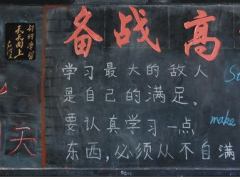 好好学习
天天向上
毛泽东
备战高
学习最大的敌人
是自己的满足。
要认真学习一点
东西,必须从不自满
天
make